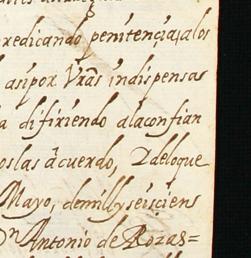 predicando penitençia, alos
asipor Vrãs indispensas
difiriendo alaconfian
oslas acuerdo, 2 deloque
Mayo, demillyseisçiens
Dn Antonio de Rozas=